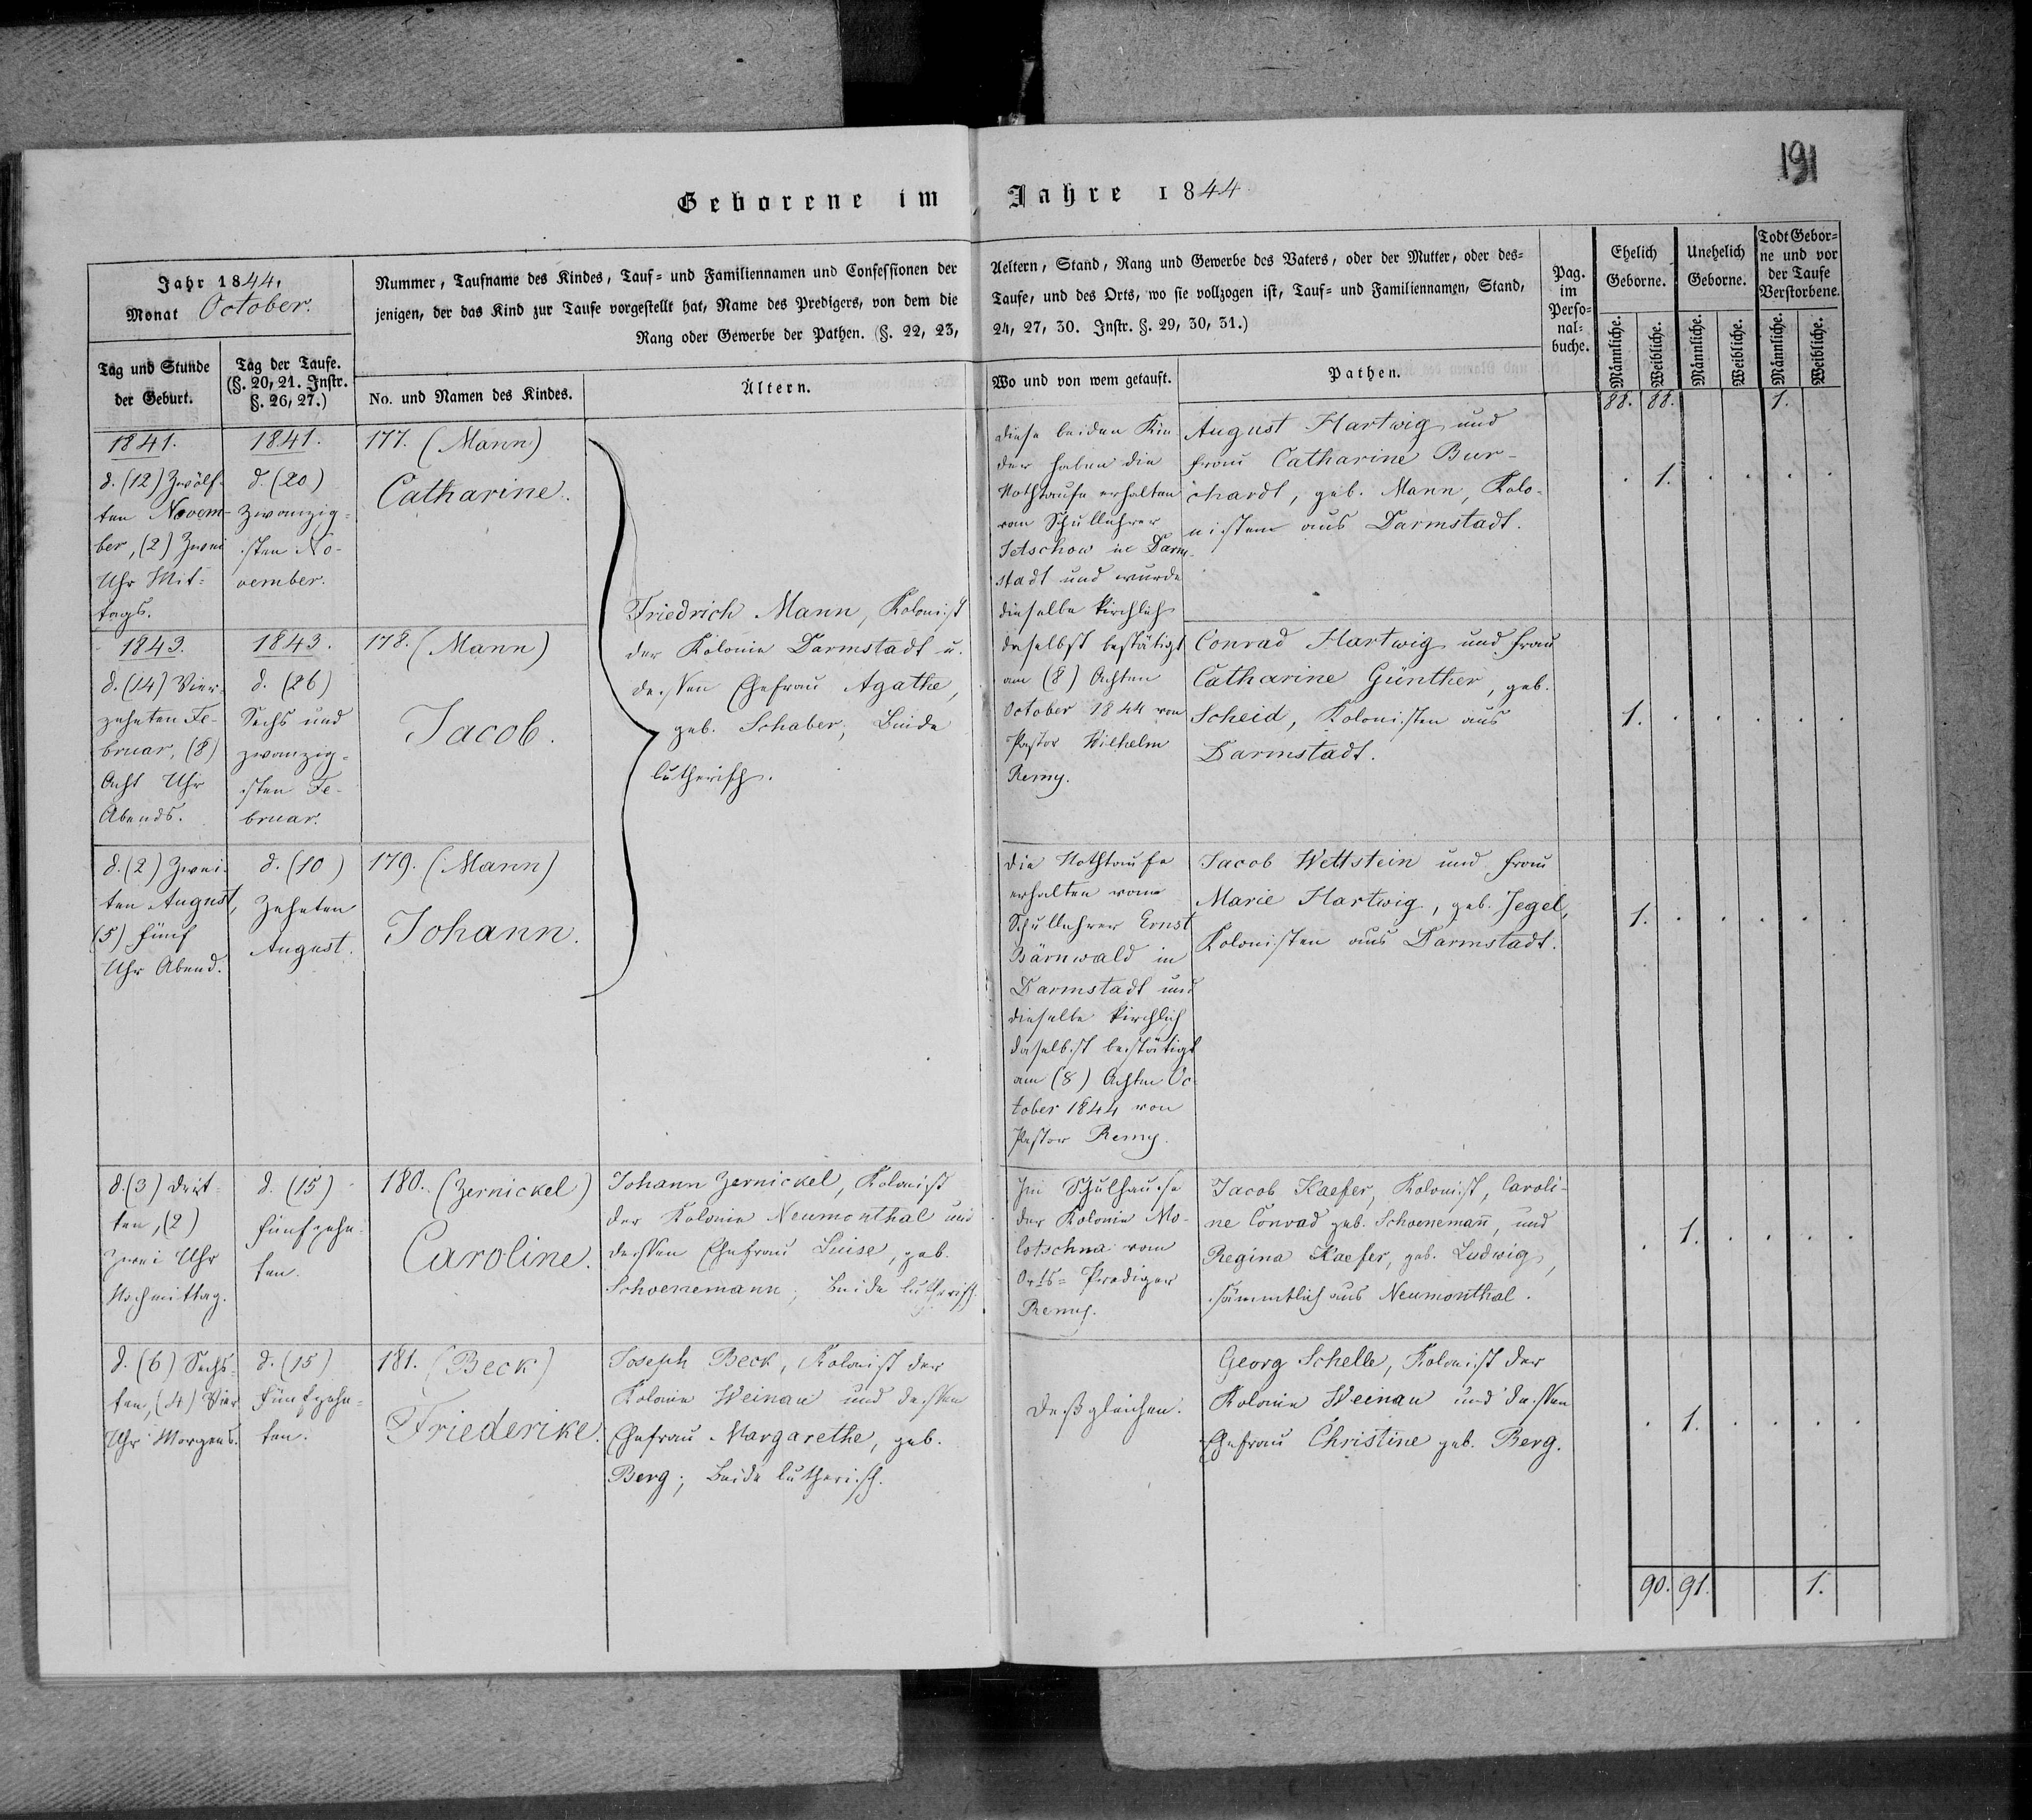 191
Geborene im Jahre 1844
Jahr 1844.
Monat October.
Nummer, Taufname des Kindes, Tauf- und Familiennamen und Confessionen der
jenigen, der das Kind zur Taufe vorgestellt hat, Name des Predigers, von dem die
Rang oder Gewerbe der Pathen. (§. 22, 23,
Aeltern, Stand, Rang und Gewerbe des Vaters, oder der Mutter, oder des-
Taufe, und des Orts, wo sie vollzogen ist, Tauf- und Familiennamen, Stand,
24, 27, 30. Instr. §. 29, 30, 31.)
Pag.
im
Perso-
nal-
buche.
Ehelich
Geborne.
Unehelich
Geborne.
Todt Gebor-
ne und vor
der Taufe
Verstorbene.
Männliche.
Weibliche.
Männliche.
Weibliche.
Männliche.
Weibliche.
Tag und Stunde
der Geburt.
Tag der Taufe.
(§. 20, 21. Instr.
§. 26, 27.)
No. und Namen des Kindes.
Ältern.
Wo und von wem getauft.
Pathen.
88. 88. 1.
1841.
d. (12) Zwölf-
ten Novem-
ber, (2) Zwei
Uhr Mit-
tags.
1841.
d. (20)
Zwanzig-
sten No-
vember.
177. (Mann)
Catharine.
Friedrich Mann, Kolonist
der Kolonie Darmstadt u.
dessen Ehefrau Agathe,
geb. Schaber; Beide
lutherisch.
diese beiden Kin-
der haben die
Nothtaufe erhalten
vom Schullehrer
Jetschow in Darm-
stadt und wurde
dieselbe kirchlich
daselbst bestätigt
am (8) Achten
October 1844 von
Pastor Wilhelm
Remy.
August Hartwig und
Frau Catharine Bur-
chardt, geb. Mann, Kolo-
nisten aus Darmstadt.
. 1. . . . .
1843.
d. (14) Vier-
zehnten Fe-
bruar, (8)
Acht Uhr
Abends.
1843.
d. (26)
Sechs und
zwanzig-
sten Fe-
bruar.
178. (Mann)
Jacob.
Conrad Hartwig und Frau
Catharine Günther, geb.
Scheid, Kolonisten aus
Darmstadt.
1. . . . . .
d. (2) Zwei-
ten August,
(5) Fünf
Uhr Abend.
d. (10)
Zehnten
August.
179. (Mann)
Johann.
Die Nothtaufe
erhalten vom
Schullehrer Ernst
Bärnwald in
Darmstadt und
dieselbe kirchlich
daselbst bestätigt
am (8) Achten Oc-
tober 1844 von
Pastor Remy.
Jacob Wettstein und Frau
Marie Hartwig, geb. Jegel,
Kolonisten aus Darmstadt.
1. . . . . .
d. (3) Drit-
ten, (2)
Zwei Uhr
Nachmittag.
d. (15)
Fünfzehn-
ten.
180. (Zernickel)
Caroline.
Johann Zernickel, Kolonist
der Kolonie Neumonthal und
dessen Ehefrau Luise, geb.
Schoenemann; Beide lutherisch.
Im Schulhause
der Kolonie Mo-
lotschna vom
Orts-Prediger
Remy.
Jacob Kaefer, Kolonist, Caroli-
ne Conrad geb. Schoenemañ, und
Regina Kaefer, geb. Ludwig,
sämmtlich aus Neumonthal.
. 1. . . . .
d. (6) Sechs-
ten, (4) Vier
Uhr Morgens.
d. (15)
Fünfzehn-
ten.
181. (Beck)
Friederike.
Joseph Beck, Kolonist der
Kolonie Weinau und dessen
Ehefrau Margarethe, geb.
Berg; Beide lutherisch.
Deßgleichen.
Georg Schelle, Kolonist der
Kolonie Weinau und dessen
Ehefrau Christine geb. Berg.
. 1. . . . .
90. 91. 1.